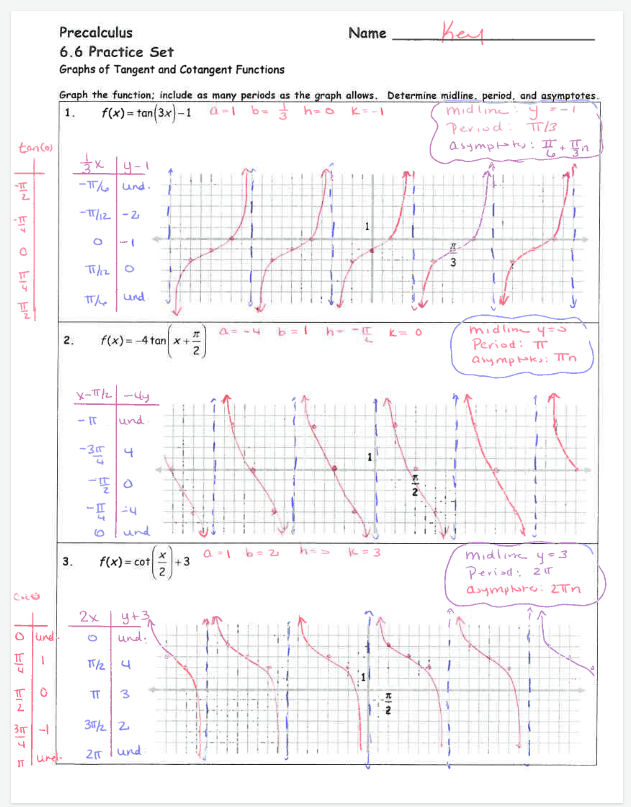 Precalculus
Name Key
6.6 Practice Set
Graphs of Tangent and Cotangent Functions
Graph the function; include as many periods as the graph allows. Determine midline, period, and asymptotes.
1. f(x) = tan(3x) - 1 a=1 b=1/3 h=0 k=-1
midline: y=-1
Period: π/3
asymptotes: π/6 + π/3 n
tan(θ)
-π/2
-π/4
0
π/4
π/2
1/3 x | y-1
-π/6 | und.
-π/12 | -2
0 | -1
π/12 | 0
π/6 | und
1
π/3
2. f(x) = -4 tan(x + π/2) a=-4 b=1 h=-π/2 k=0
midline y=0
Period: π
asymptotes: πn
x-π/2 | -4y
-π | und.
-3π/4 | 4
-π/2 | 0
-π/4 | -4
0 | und
1
π/2
3. f(x) = cot(x/2) + 3 a=1 b=2 h=0 k=3
midline y=3
Period: 2π
asymptote: 2πn
0 | und.
π/4 | 1
π/2 | 0
3π/4 | -1
π | und.
2x | y+3
0 | und.
π/2 | 4
π | 3
3π/2 | 2
2π | und
1
π/2